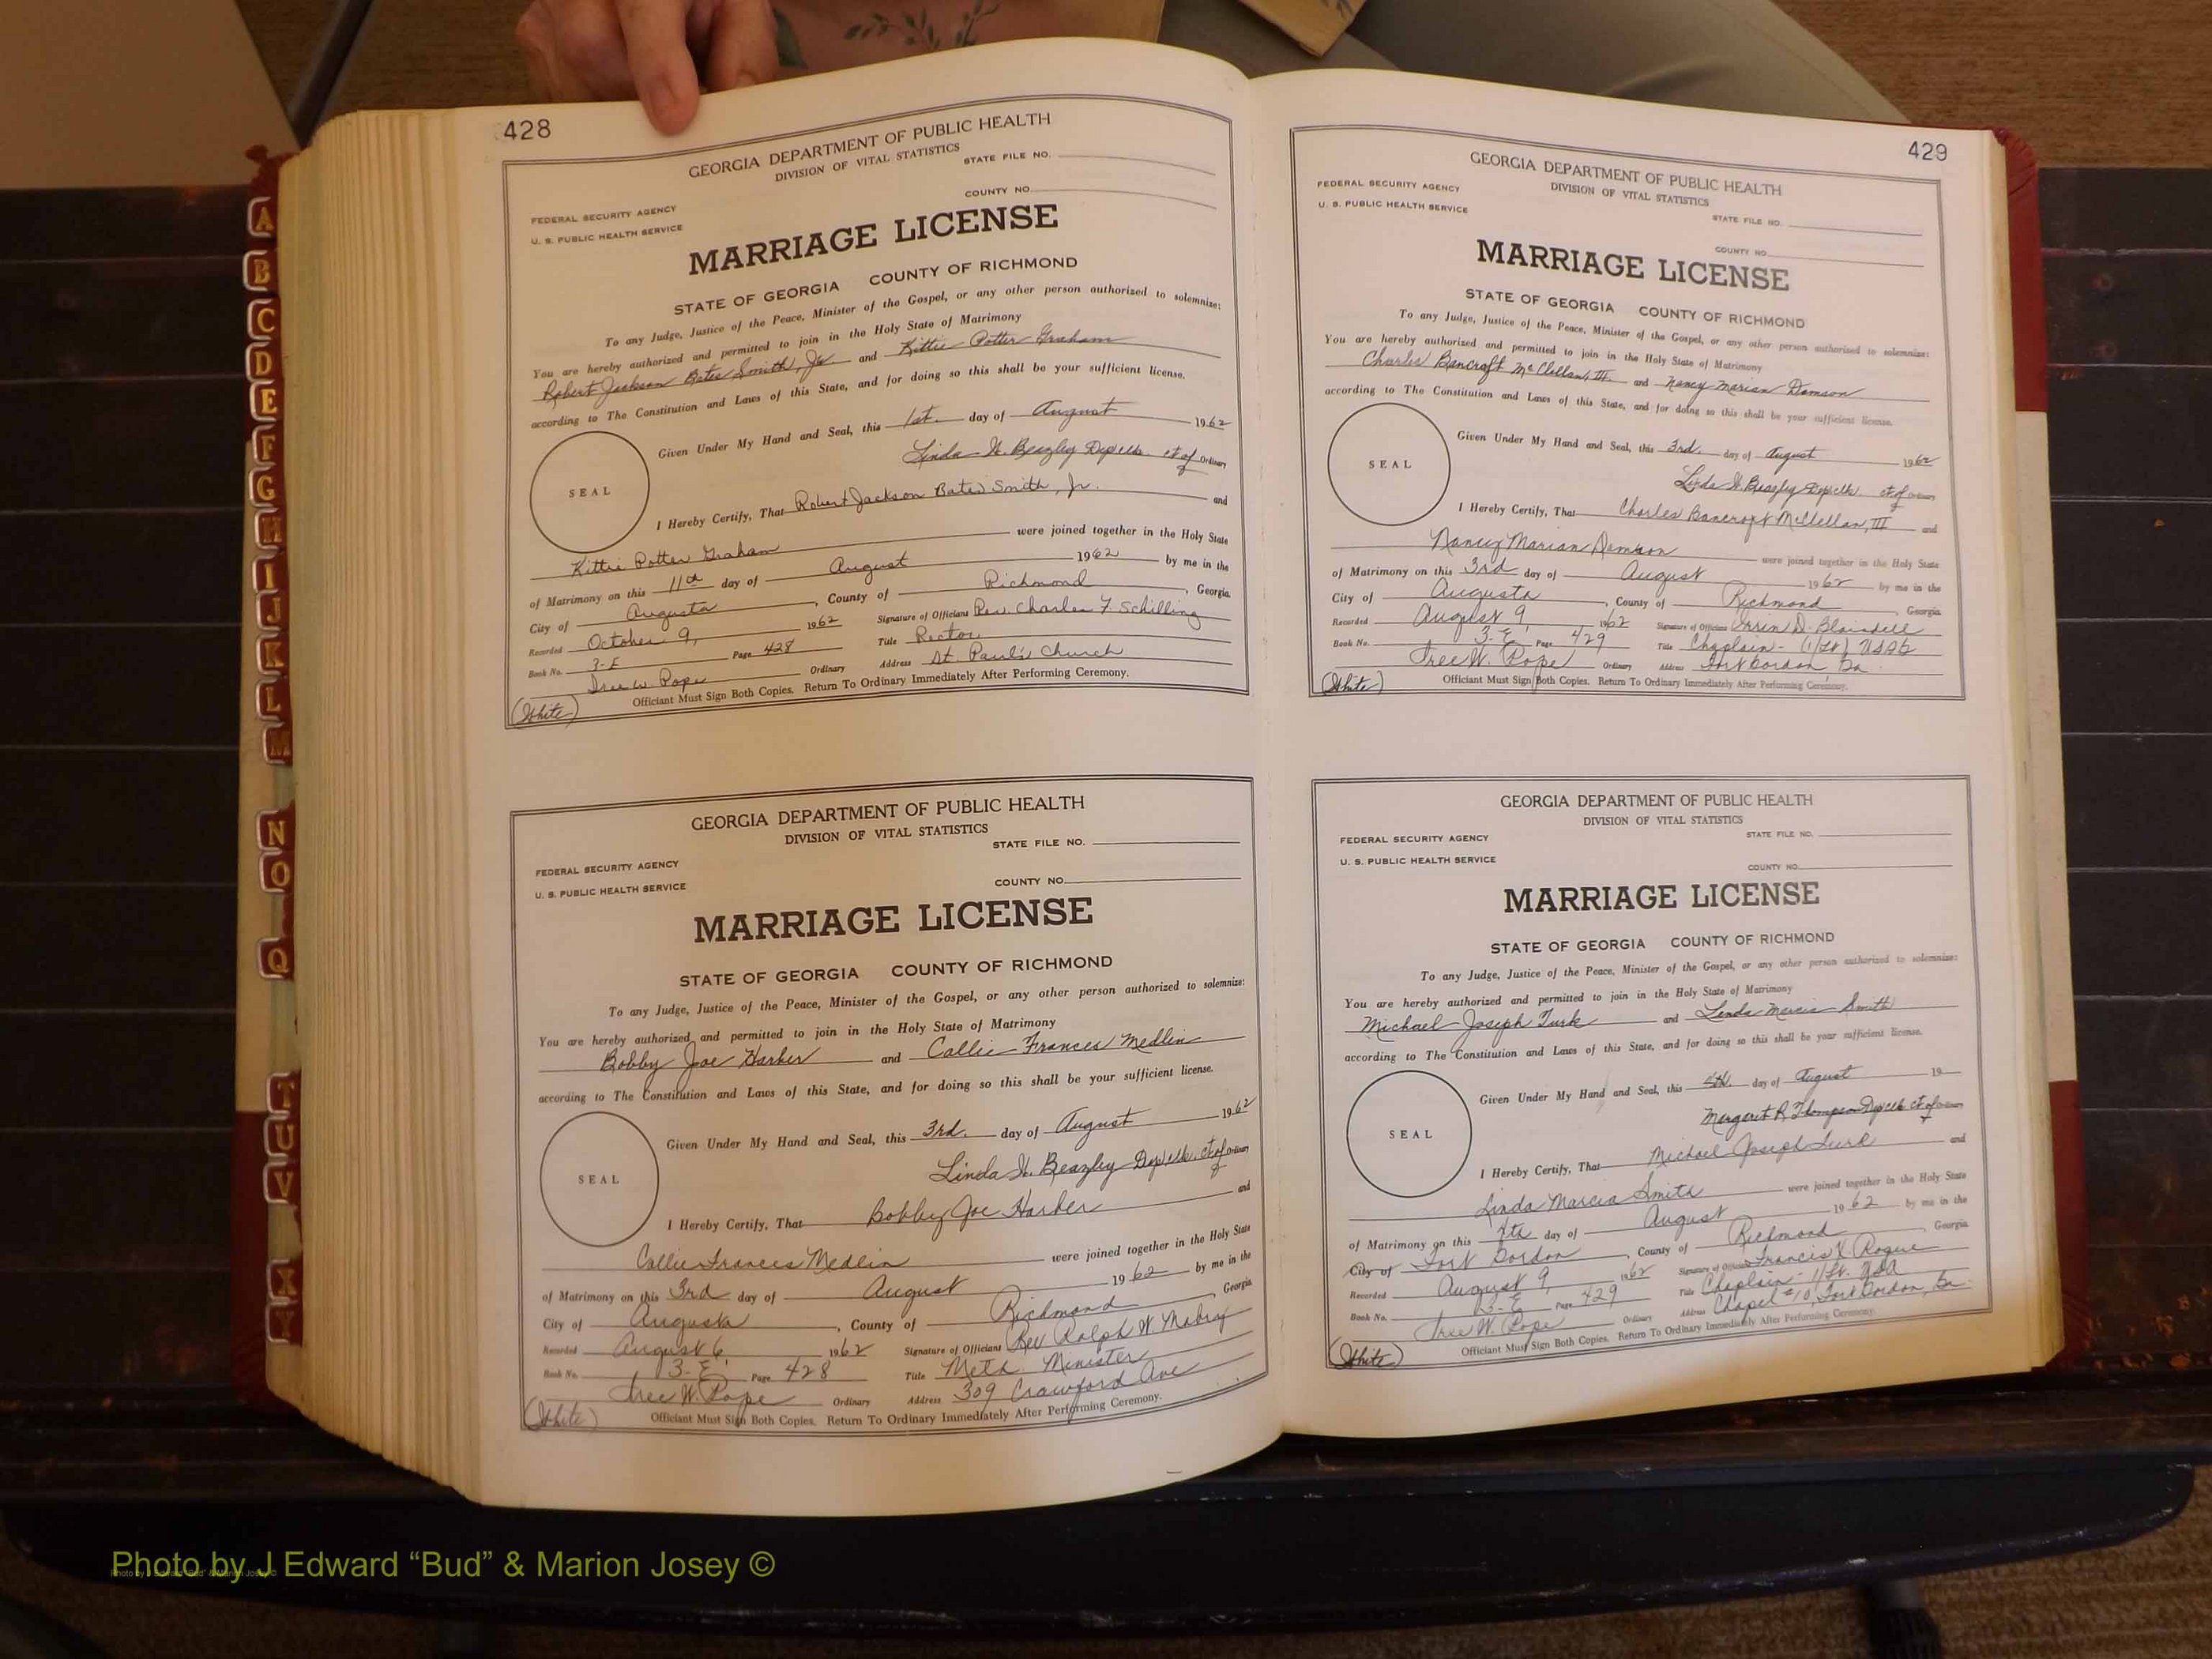 428
GEORGIA DEPARTMENT OF PUBLIC HEALTH
DIVISION OF VITAL STATISTICS
STATE FILE NO.
COUNTY NO.
FEDERAL SECURITY AGENCY
U. S. PUBLIC HEALTH SERVICE
MARRIAGE LICENSE
STATE OF GEORGIA COUNTY OF RICHMOND
To any Judge, Justice of the Peace, Minister of the Gospel, or any other person authorized to solemnize:
You are hereby authorized and permitted to join in the Holy State of Matrimony
Robert Jackson Bates Smith, Jr. and Kittie Potter Graham
according to The Constitution and Laws of this State, and for doing so this shall be your sufficient license.
Given Under My Hand and Seal, this 1st. day of August 1962
Linda W. Beazley Dep clk. ct of Ordinary
SEAL
I Hereby Certify, That Robert Jackson Bates Smith, Jr. and
Kittie Potter Graham were joined together in the Holy State
of Matrimony on this 11th day of August 1962 by me in the
City of Augusta, County of Richmond, Georgia.
Recorded October 9, 1962 Signature of Officiant Rev. Charles F. Schilling
Book No. 3-E Page 428 Title Rector
Ordinary Address St. Paul's Church
(White) Officiant Must Sign Both Copies. Return To Ordinary Immediately After Performing Ceremony.
GEORGIA DEPARTMENT OF PUBLIC HEALTH
DIVISION OF VITAL STATISTICS
STATE FILE NO.
FEDERAL SECURITY AGENCY
U. S. PUBLIC HEALTH SERVICE
COUNTY NO.
MARRIAGE LICENSE
STATE OF GEORGIA COUNTY OF RICHMOND
To any Judge, Justice of the Peace, Minister of the Gospel, or any other person authorized to solemnize:
You are hereby authorized and permitted to join in the Holy State of Matrimony
Bobby Joe Harber and Callie Frances Medlin
according to The Constitution and Laws of this State, and for doing so this shall be your sufficient license.
Given Under My Hand and Seal, this 3rd. day of August 1962
Linda W. Beazley Dep clk. ct of Ordinary
SEAL
I Hereby Certify, That Bobby Joe Harber and
Callie Frances Medlin were joined together in the Holy State
of Matrimony on this 3rd day of August 1962 by me in the
City of Augusta, County of Richmond, Georgia
Recorded August 6 1962 Signature of Officiant Rev Ralph W. Mabry
Book No. 3-E Page 428 Title Meth Minister
Ordinary Address 309 Crawford Ave
(White) Officiant Must Sign Both Copies. Return To Ordinary Immediately After Performing Ceremony.
429
GEORGIA DEPARTMENT OF PUBLIC HEALTH
DIVISION OF VITAL STATISTICS
FEDERAL SECURITY AGENCY
U. S. PUBLIC HEALTH SERVICE
STATE FILE NO.
COUNTY NO.
MARRIAGE LICENSE
STATE OF GEORGIA COUNTY OF RICHMOND
To any Judge, Justice of the Peace, Minister of the Gospel, or any other person authorized to solemnize:
You are hereby authorized and permitted to join in the Holy State of Matrimony
Charles Bancroft McClellan, III. and Nancy Marian Damson
according to The Constitution and Laws of this State, and for doing so this shall be your sufficient license.
Given Under My Hand and Seal, this 3rd. day of August 1962
Linda W. Beazley Dep clk. ct of Ordinary
SEAL
I Hereby Certify, That Charles Bancroft McClellan, III and
Nancy Marian Damson were joined together in the Holy State
of Matrimony on this 3rd day of August 1962 by me in the
City of Augusta, County of Richmond, Georgia
Recorded August 9 1962 Signature of Officiant Orren D. Blaisdell
Book No. 3-E Page 429 Title Chaplain- (1/Lt)
Ordinary Address Fort Gordon Ga
(White) Officiant Must Sign Both Copies. Return To Ordinary Immediately After Performing Ceremony.
GEORGIA DEPARTMENT OF PUBLIC HEALTH
DIVISION OF VITAL STATISTICS
STATE FILE NO.
FEDERAL SECURITY AGENCY
U. S. PUBLIC HEALTH SERVICE
COUNTY NO.
MARRIAGE LICENSE
STATE OF GEORGIA COUNTY OF RICHMOND
To any Judge, Justice of the Peace, Minister of the Gospel, or any other person authorized to solemnize:
You are hereby authorized and permitted to join in the Holy State of Matrimony
Michael Joseph Turk and Linda Marcia Smith
according to The Constitution and Laws of this State, and for doing so this shall be your sufficient license.
Given Under My Hand and Seal, this 4th. day of August 19
Margaret R. Thompson Dep clk ct of Ordinary
SEAL
I Hereby Certify, That Michael Joseph Turk and
Linda Marcia Smith were joined together in the Holy State
of Matrimony on this 4th day of August 1962 by me in the
City of Fort Gordon, County of Richmond, Georgia
Recorded August 9, 1962 Signature of Officiant Francis X. Rogue
Book No. 3-E Page 429 Title Chaplain- 1/Lt. USA
Ordinary Address Chapel #10, Fort Gordon, Ga.
(White) Officiant Must Sign Both Copies. Return To Ordinary Immediately After Performing Ceremony.
A
B
C
D
E
F
G
H
I
J
K
L
M
N
O
Q
T
U
V
X
Y
Photo by J Edward “Bud” & Marion Josey ©
Photo by J Edward "Bud" & Marion Josey ©